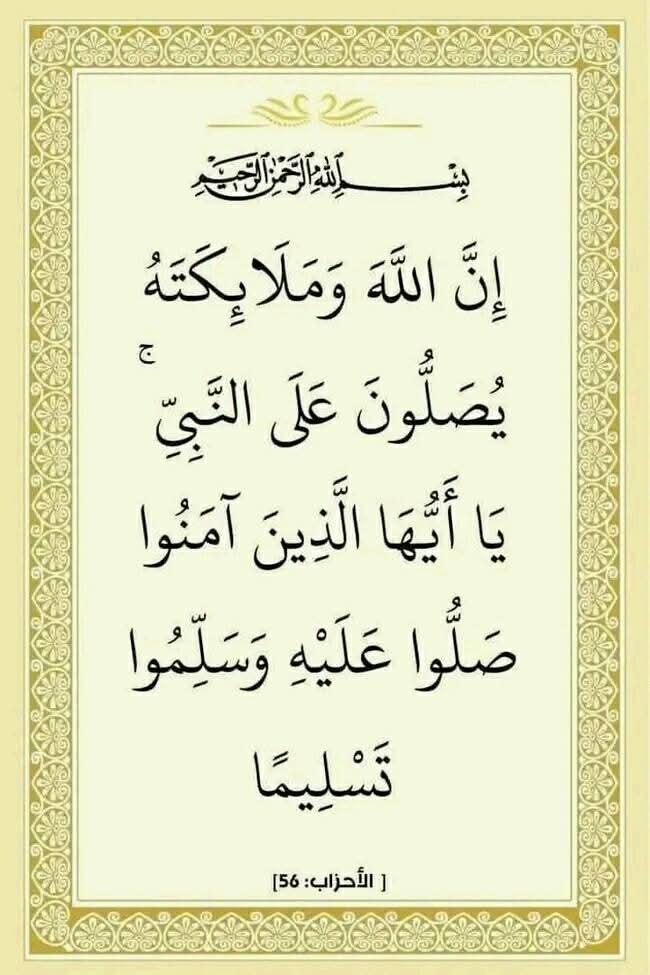 بِسْمِ اللهِ الرَّحْمٰنِ الرَّحِيمِ
إِنَّ اللَّهَ وَمَلَائِكَتَهُ
يُصَلُّونَ عَلَى النَّبِيِّ ۚ
يَا أَيُّهَا الَّذِينَ آمَنُوا
صَلُّوا عَلَيْهِ وَسَلِّمُوا
تَسْلِيمًا
[ الأحزاب: 56]